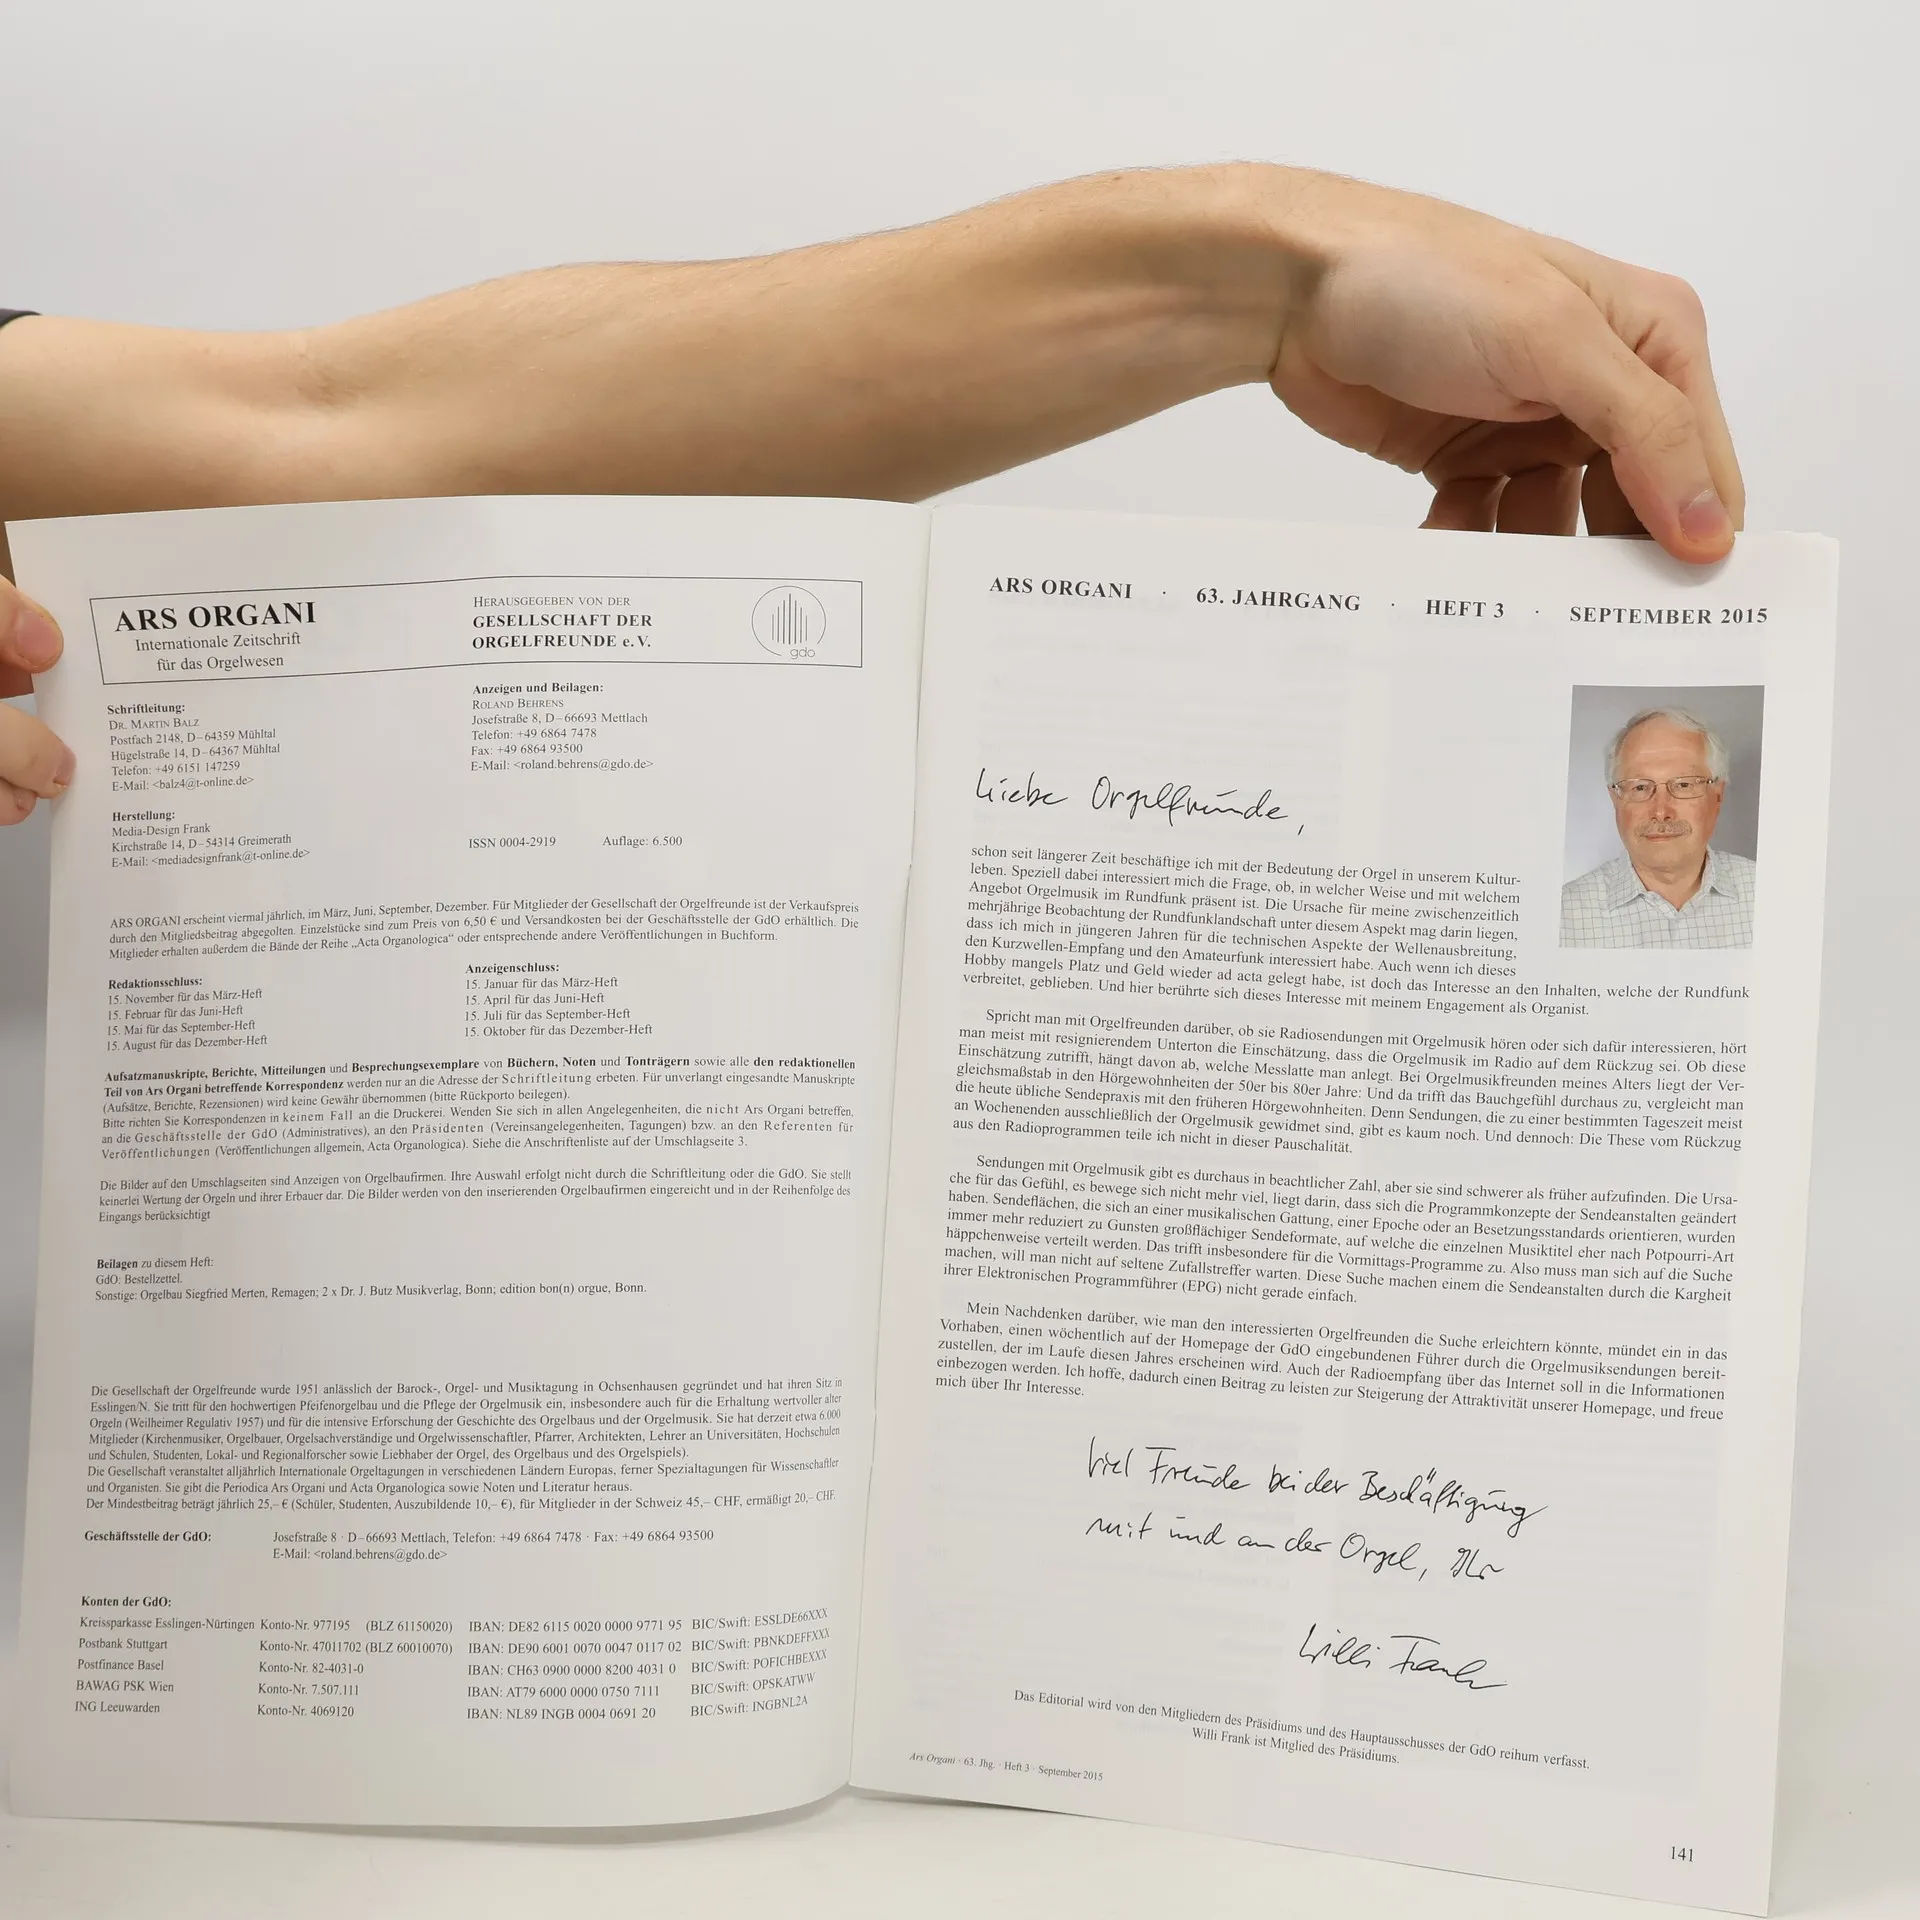 ARS ORGANI
Internationale Zeitschrift
für das Orgelwesen
HERAUSGEGEBEN VON DER
GESELLSCHAFT DER
ORGELFREUNDE e.V.
gdo
Schriftleitung:
DR. MARTIN BALZ
Postfach 2148, D–64359 Mühltal
Hügelstraße 14, D–64367 Mühltal
Telefon: +49 6151 147259
E-Mail: <balz4@t-online.de>
Anzeigen und Beilagen:
ROLAND BEHRENS
Josefstraße 8, D–66693 Mettlach
Telefon: +49 6864 7478
Fax: +49 6864 93500
E-Mail: <roland.behrens@gdo.de>
Herstellung:
Media-Design Frank
Kirchstraße 14, D–54314 Greimerath
E-Mail: <mediadesignfrank@t-online.de>
ISSN 0004-2919 Auflage: 6.500
ARS ORGANI erscheint viermal jährlich, im März, Juni, September, Dezember. Für Mitglieder der Gesellschaft der Orgelfreunde ist der Verkaufspreis
durch den Mitgliedsbeitrag abgegolten. Einzelstücke sind zum Preis von 6,50 € und Versandkosten bei der Geschäftsstelle der GdO erhältlich. Die
Mitglieder erhalten außerdem die Bände der Reihe „Acta Organologica“ oder entsprechende andere Veröffentlichungen in Buchform.
Redaktionsschluss:
15. November für das März-Heft
15. Februar für das Juni-Heft
15. Mai für das September-Heft
15. August für das Dezember-Heft
Anzeigenschluss:
15. Januar für das März-Heft
15. April für das Juni-Heft
15. Juli für das September-Heft
15. Oktober für das Dezember-Heft
Aufsatzmanuskripte, Berichte, Mitteilungen und Besprechungsexemplare von Büchern, Noten und Tonträgern sowie alle den redaktionellen
Teil von Ars Organi betreffende Korrespondenz werden nur an die Adresse der Schriftleitung erbeten. Für unverlangt eingesandte Manuskripte
(Aufsätze, Berichte, Rezensionen) wird keine Gewähr übernommen (bitte Rückporto beilegen).
Bitte richten Sie Korrespondenzen in keinem Fall an die Druckerei. Wenden Sie sich in allen Angelegenheiten, die nicht Ars Organi betreffen,
an die Geschäftsstelle der GdO (Administratives), an den Präsidenten (Vereinsangelegenheiten, Tagungen) bzw. an den Referenten für
Veröffentlichungen (Veröffentlichungen allgemein, Acta Organologica). Siehe die Anschriftenliste auf der Umschlagseite 3.
Die Bilder auf den Umschlagseiten sind Anzeigen von Orgelbaufirmen. Ihre Auswahl erfolgt nicht durch die Schriftleitung oder die GdO. Sie stellt
keinerlei Wertung der Orgeln und ihrer Erbauer dar. Die Bilder werden von den inserierenden Orgelbaufirmen eingereicht und in der Reihenfolge des
Eingangs berücksichtigt
Beilagen zu diesem Heft:
GdO: Bestellzettel.
Sonstige: Orgelbau Siegfried Merten, Remagen; 2 x Dr. J. Butz Musikverlag, Bonn; edition bon(n) orgue, Bonn.
Die Gesellschaft der Orgelfreunde wurde 1951 anlässlich der Barock-, Orgel- und Musiktagung in Ochsenhausen gegründet und hat ihren Sitz in
Esslingen/N. Sie tritt für den hochwertigen Pfeifenorgelbau und die Pflege der Orgelmusik ein, insbesondere auch für die Erhaltung wertvoller alter
Orgeln (Weilheimer Regulativ 1957) und für die intensive Erforschung der Geschichte des Orgelbaus und der Orgelmusik. Sie hat derzeit etwa 6.000
Mitglieder (Kirchenmusiker, Orgelbauer, Orgelsachverständige und Orgelwissenschaftler, Pfarrer, Architekten, Lehrer an Universitäten, Hochschulen
und Schulen, Studenten, Lokal- und Regionalforscher sowie Liebhaber der Orgel, des Orgelbaus und des Orgelspiels).
Die Gesellschaft veranstaltet alljährlich Internationale Orgeltagungen in verschiedenen Ländern Europas, ferner Spezialtagungen für Wissenschaftler
und Organisten. Sie gibt die Periodica Ars Organi und Acta Organologica sowie Noten und Literatur heraus.
Der Mindestbeitrag beträgt jährlich 25,– € (Schüler, Studenten, Auszubildende 10,– €), für Mitglieder in der Schweiz 45,– CHF, ermäßigt 20,– CHF.
Geschäftsstelle der GdO: Josefstraße 8 · D–66693 Mettlach, Telefon: +49 6864 7478 · Fax: +49 6864 93500
E-Mail: <roland.behrens@gdo.de>
Konten der GdO:
Kreissparkasse Esslingen-Nürtingen Konto-Nr. 977195 (BLZ 61150020) IBAN: DE82 6115 0020 0000 9771 95 BIC/Swift: ESSLDE66XXX
Postbank Stuttgart Konto-Nr. 47011702 (BLZ 60010070) IBAN: DE90 6001 0070 0047 0117 02 BIC/Swift: PBNKDEFFXXX
Postfinance Basel Konto-Nr. 82-4031-0 IBAN: CH63 0900 0000 8200 4031 0 BIC/Swift: POFICHBEXXX
BAWAG PSK Wien Konto-Nr. 7.507.111 IBAN: AT79 6000 0000 0750 7111 BIC/Swift: OPSKATWW
ING Leeuwarden Konto-Nr. 4069120 IBAN: NL89 INGB 0004 0691 20 BIC/Swift: INGBNL2A
ARS ORGANI · 63. JAHRGANG · HEFT 3 · SEPTEMBER 2015
Liebe Orgelfreunde,
schon seit längerer Zeit beschäftige ich mit der Bedeutung der Orgel in unserem Kultur-
leben. Speziell dabei interessiert mich die Frage, ob, in welcher Weise und mit welchem
Angebot Orgelmusik im Rundfunk präsent ist. Die Ursache für meine zwischenzeitlich
mehrjährige Beobachtung der Rundfunklandschaft unter diesem Aspekt mag darin liegen,
dass ich mich in jüngeren Jahren für die technischen Aspekte der Wellenausbreitung,
den Kurzwellen-Empfang und den Amateurfunk interessiert habe. Auch wenn ich dieses
Hobby mangels Platz und Geld wieder ad acta gelegt habe, ist doch das Interesse an den Inhalten, welche der Rundfunk
verbreitet, geblieben. Und hier berührte sich dieses Interesse mit meinem Engagement als Organist.
Spricht man mit Orgelfreunden darüber, ob sie Radiosendungen mit Orgelmusik hören oder sich dafür interessieren, hört
man meist mit resignierendem Unterton die Einschätzung, dass die Orgelmusik im Radio auf dem Rückzug sei. Ob diese
Einschätzung zutrifft, hängt davon ab, welche Messlatte man anlegt. Bei Orgelmusikfreunden meines Alters liegt der Ver-
gleichsmaßstab in den Hörgewohnheiten der 50er bis 80er Jahre: Und da trifft das Bauchgefühl durchaus zu, vergleicht man
die heute übliche Sendepraxis mit den früheren Hörgewohnheiten. Denn Sendungen, die zu einer bestimmten Tageszeit meist
an Wochenenden ausschließlich der Orgelmusik gewidmet sind, gibt es kaum noch. Und dennoch: Die These vom Rückzug
aus den Radioprogrammen teile ich nicht in dieser Pauschalität.
Sendungen mit Orgelmusik gibt es durchaus in beachtlicher Zahl, aber sie sind schwerer als früher aufzufinden. Die Ursa-
che für das Gefühl, es bewege sich nicht mehr viel, liegt darin, dass sich die Programmkonzepte der Sendeanstalten geändert
haben. Sendeflächen, die sich an einer musikalischen Gattung, einer Epoche oder an Besetzungsstandards orientieren, wurden
immer mehr reduziert zu Gunsten großflächiger Sendeformate, auf welche die einzelnen Musiktitel eher nach Potpourri-Art
häppchenweise verteilt werden. Das trifft insbesondere für die Vormittags-Programme zu. Also muss man sich auf die Suche
machen, will man nicht auf seltene Zufallstreffer warten. Diese Suche machen einem die Sendeanstalten durch die Kargheit
ihrer Elektronischen Programmführer (EPG) nicht gerade einfach.
Mein Nachdenken darüber, wie man den interessierten Orgelfreunden die Suche erleichtern könnte, mündet ein in das
Vorhaben, einen wöchentlich auf der Homepage der GdO eingebundenen Führer durch die Orgelmusiksendungen bereit-
zustellen, der im Laufe diesen Jahres erscheinen wird. Auch der Radioempfang über das Internet soll in die Informationen
einbezogen werden. Ich hoffe, dadurch einen Beitrag zu leisten zur Steigerung der Attraktivität unserer Homepage, und freue
mich über Ihr Interesse.
Viel Freude bei der Beschäftigung
mit und an der Orgel, Ihr
Willi Frank
Das Editorial wird von den Mitgliedern des Präsidiums und des Hauptausschusses der GdO reihum verfasst.
Willi Frank ist Mitglied des Präsidiums.
Ars Organi · 63. Jhg. · Heft 3 · September 2015
141